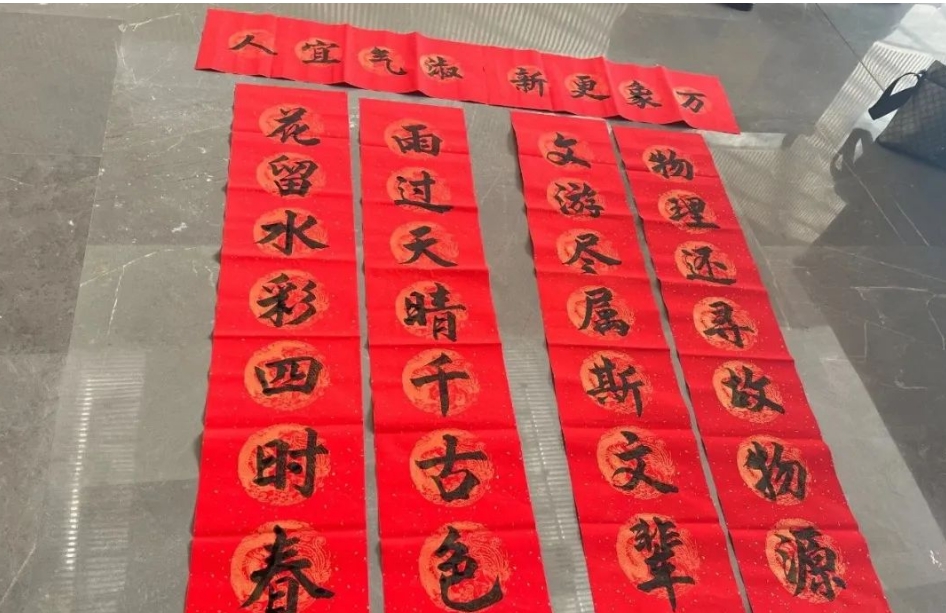 万象更新
淑气宜人
物理还寻故物源
文游尽属斯文辈
雨过天晴千古色
花留水彩四时春